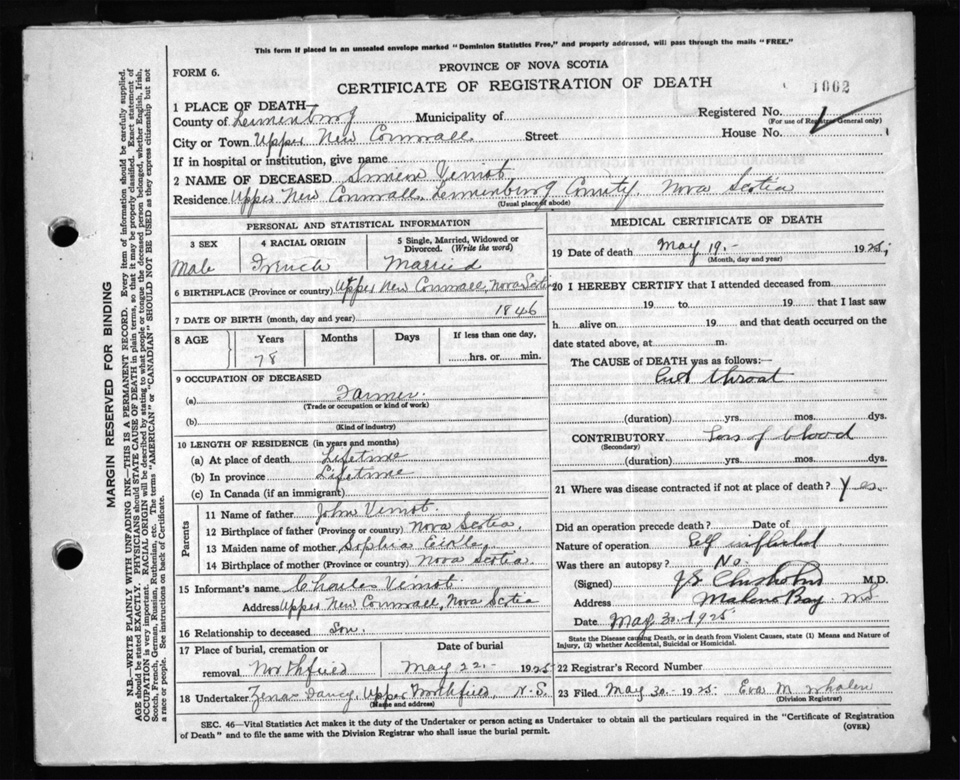 This form if placed in an unsealed envelope marked "Dominion Statistics Free," and properly addressed, will pass through the mails "FREE."
FORM 6.
PROVINCE OF NOVA SCOTIA
CERTIFICATE OF REGISTRATION OF DEATH
1662
1 PLACE OF DEATH—
County of Lunenburg Municipality of
Registered No.
(For use of Registrar General only)
City or Town Upper New Cornwall Street House No.
If in hospital or institution, give name
2 NAME OF DECEASED Simeon Veinot
Residence Upper New Cornwall, Lunenburg County Nova Scotia
(Usual place of abode)
PERSONAL AND STATISTICAL INFORMATION
3 SEX
Male
4 RACIAL ORIGIN
French
5 Single, Married, Widowed or Divorced. (Write the word)
Married
6 BIRTHPLACE (Province or country) Upper New Cornwall, Nova Scotia
7 DATE OF BIRTH (month, day and year) 1846
8 AGE
Years
78
Months
Days
If less than one day,
hrs. or min.
9 OCCUPATION OF DECEASED
(a) Farmer.
(Trade or occupation or kind of work)
(b)
(Kind of industry)
10 LENGTH OF RESIDENCE (in years and months)
(a) At place of death Lifetime
(b) In province Lifetime
(c) In Canada (if an immigrant)
Parents
11 Name of father John Veinot.
12 Birthplace of father (Province or country) Nova Scotia.
13 Maiden name of mother Sophia
14 Birthplace of mother (Province or country) Nova Scotia.
15 Informant's name Charles Veinot.
Address Upper New Cornwall, Nova Scotia
16 Relationship to deceased Son.
17 Place of burial, cremation or removal Northfield
Date of burial
May 22.- 1925
18 Undertaker Zenas Upper Northfield, N.S.
(Name and address)
MEDICAL CERTIFICATE OF DEATH
19 Date of death May 19.- 1925;
(Month, day and year)
20 I HEREBY CERTIFY that I attended deceased from
19 to 19 that I last saw
h alive on 19 and that death occurred on the
date stated above, at m.
The CAUSE of DEATH was as follows:—
Cut throat
(duration) yrs. mos. dys.
CONTRIBUTORY Loss of blood
(Secondary)
(duration) yrs. mos. dys.
21 Where was disease contracted if not at place of death? Yes.
Did an operation precede death? Date of
Nature of operation Self inflicted
Was there an autopsy? No
(Signed) J S Chisholm M.D.
Address Mahone Bay NS
Date May 30-1925
State the Disease causing Death, or in death from Violent Causes, state (1) Means and Nature of Injury, (2) whether Accidental, Suicidal or Homicidal.
22 Registrar's Record Number
23 Filed May 30.- 1925. Eva M Whalen
(Division Registrar)
SEC. 46—Vital Statistics Act makes it the duty of the Undertaker or person acting as Undertaker to obtain all the particulars required in the "Certificate of Registration
of Death" and to file the same with the Division Registrar who shall issue the burial permit.
(OVER)
MARGIN RESERVED FOR BINDING
N.B.—WRITE PLAINLY WITH UNFADING INK—THIS IS A PERMANENT RECORD. Every item of information should be carefully supplied.
AGE should be stated EXACTLY. PHYSICIANS should STATE CAUSE OF DEATH in plain terms, so that it may be properly classified. Exact statement of
OCCUPATION is very important. RACIAL ORIGIN will be described by stating to what people or tongue the deceased person belonged, whether English, Irish,
Scotch, French, German, Russian, Ruthenian, etc. The terms "AMERICAN" or "CANADIAN" SHOULD NOT BE USED as they express citizenship but not
a race or people. See instructions on back of Certificate.